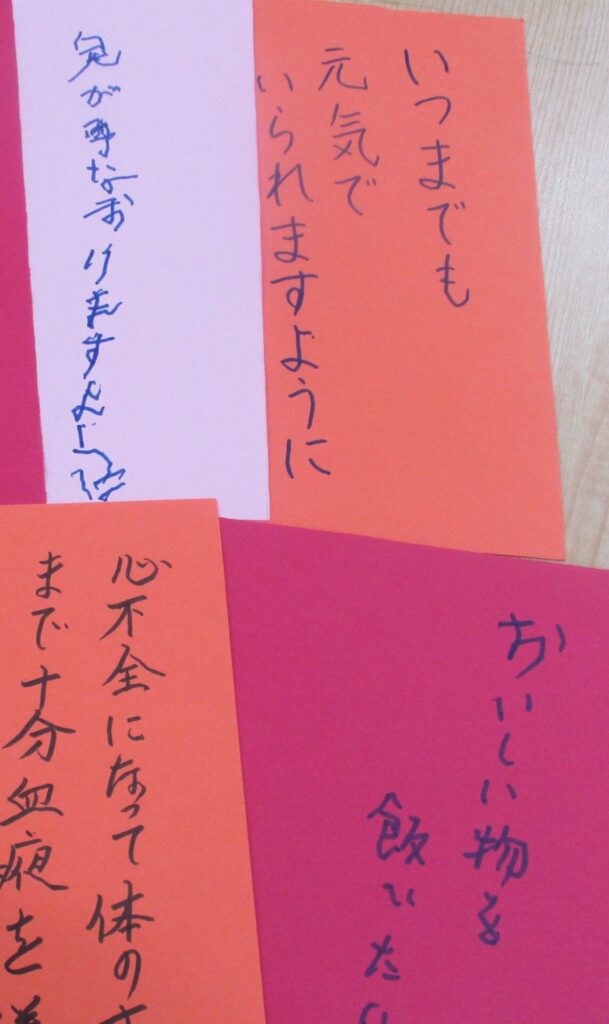 いつまでも
元気で
いられますように
が
なおりますように
おいしい物を
たい
心不全になって体の
まで十分血液を